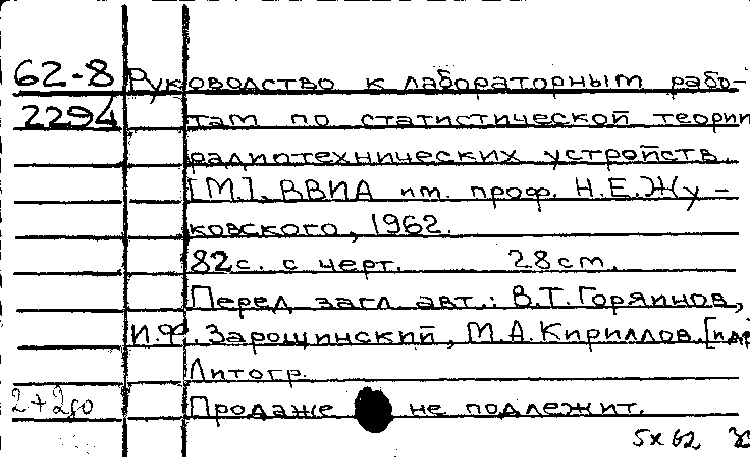 62-8 Руководство к лабораторным рабо-
2294 там по статистической теории
радиотехнических устройств.
[М.], ВВИА им. проф. Н.Е.Жу-
ковского, 1962.
82с. с черт. 28 cm.
Перед загл. авт.: В.Т.Горяинов,
И.Ф. Зарощинский, М.А.Кириллов, [и др
Литогр.
Продаже не подлежит.
5х62